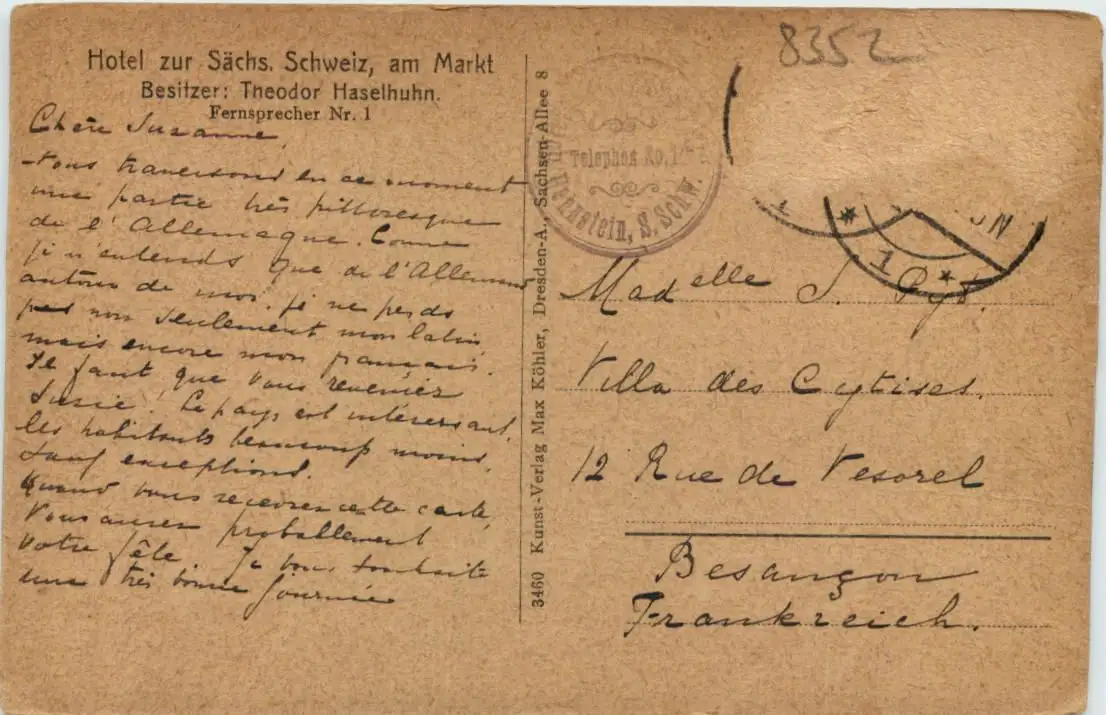 Hotel zur Sächs. Schweiz, am Markt
Besitzer: Theodor Haselhuhn.
Fernsprecher Nr. 1
Chère Suzanne,
Nous traversons en ce moment
une partie très pittoresque
de l'Allemagne. Comme
je n'entends que de l'Allemand
autour de moi, je ne perds
pas non seulement mon latin,
mais encore mon français.
Il faut que vous reveniez
Susie! Le pays est intéressant,
les habitants beaucoup moins,
sauf exceptions.
Quand vous recevrez cette carte,
vous aurez probablement
votre fête. Je vous souhaite
une très bonne journée
3460 Kunst-Verlag Max Köhler, Dresden-A., Sachsen-Allee 8
8352
Telephon No. 1
Hernstein, S. Schw.
1
Madelle S.
Villa des Cytises.
12 Rue de Vesorel
Besançon
Frankreich.